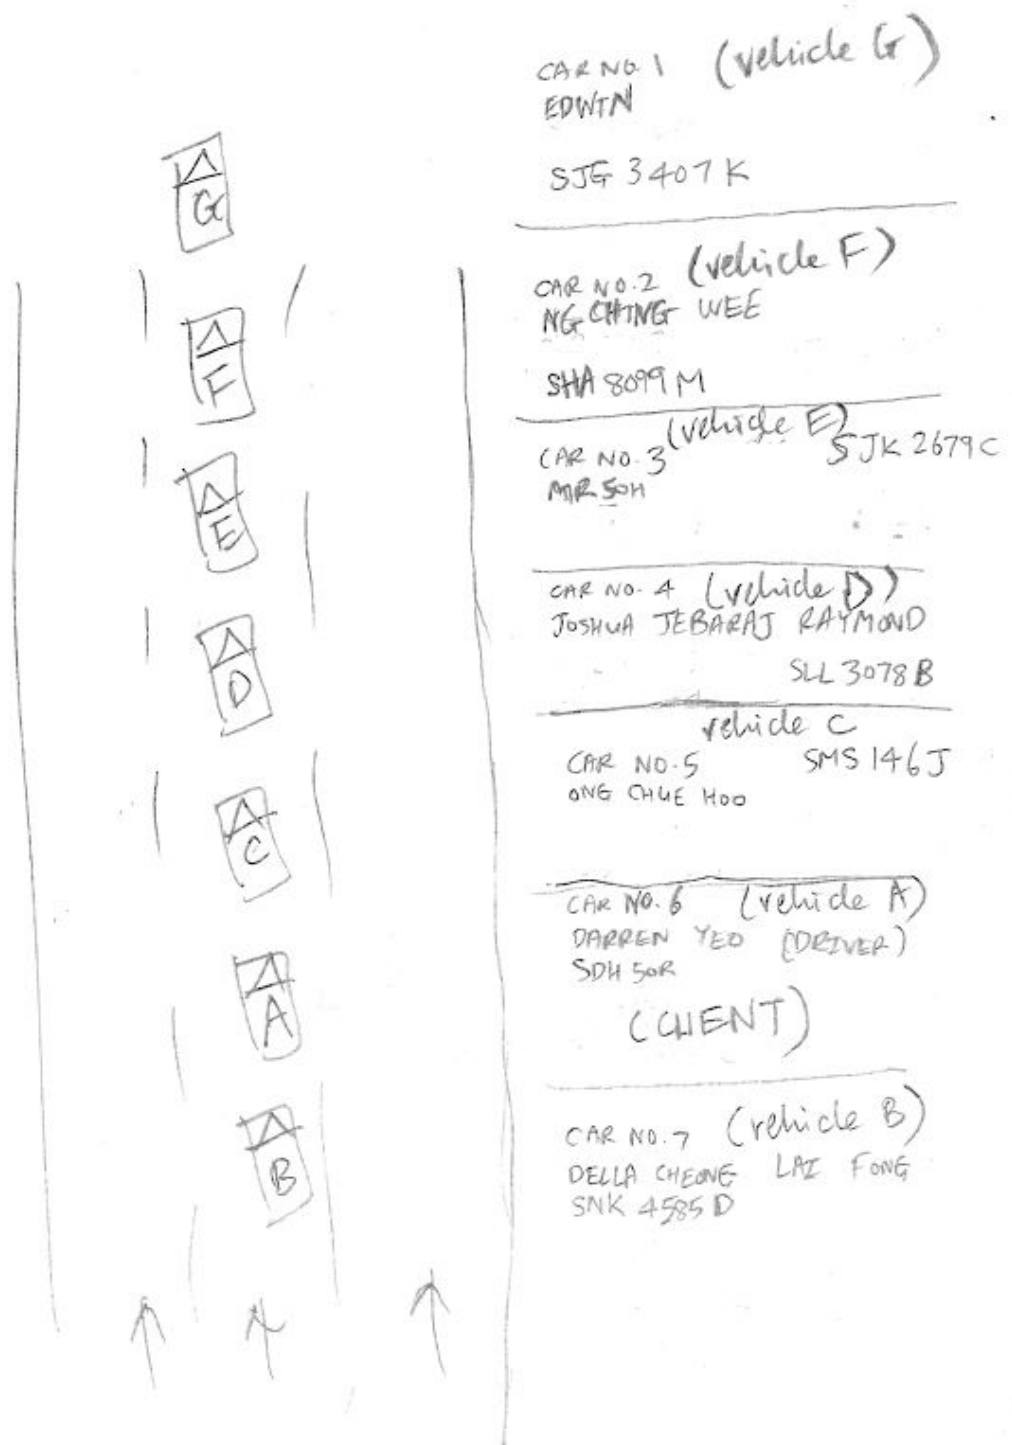 CAR NO. 1 (vehicle G)
EDWIN
SJG 3407 K
G
CAR NO. 2 (vehicle F)
NG CHING WEE
SHA 8099 M
F
CAR NO. 3 (vehicle E) SJK 2679 C
MR SOH
E
CAR NO. 4 (vehicle D)
JOSHUA JEBARAJ RAYMOND
SLL 3078 B
D
vehicle C
CAR NO. 5 SMS 146 J
ONG CHUE HOO
C
CAR NO. 6 (vehicle A)
DARREN YEO (DRIVER)
SDH 50R
(CLIENT)
A
CAR NO. 7 (vehicle B)
DELLA CHEONG LAI FONG
SNK 4585 D
B